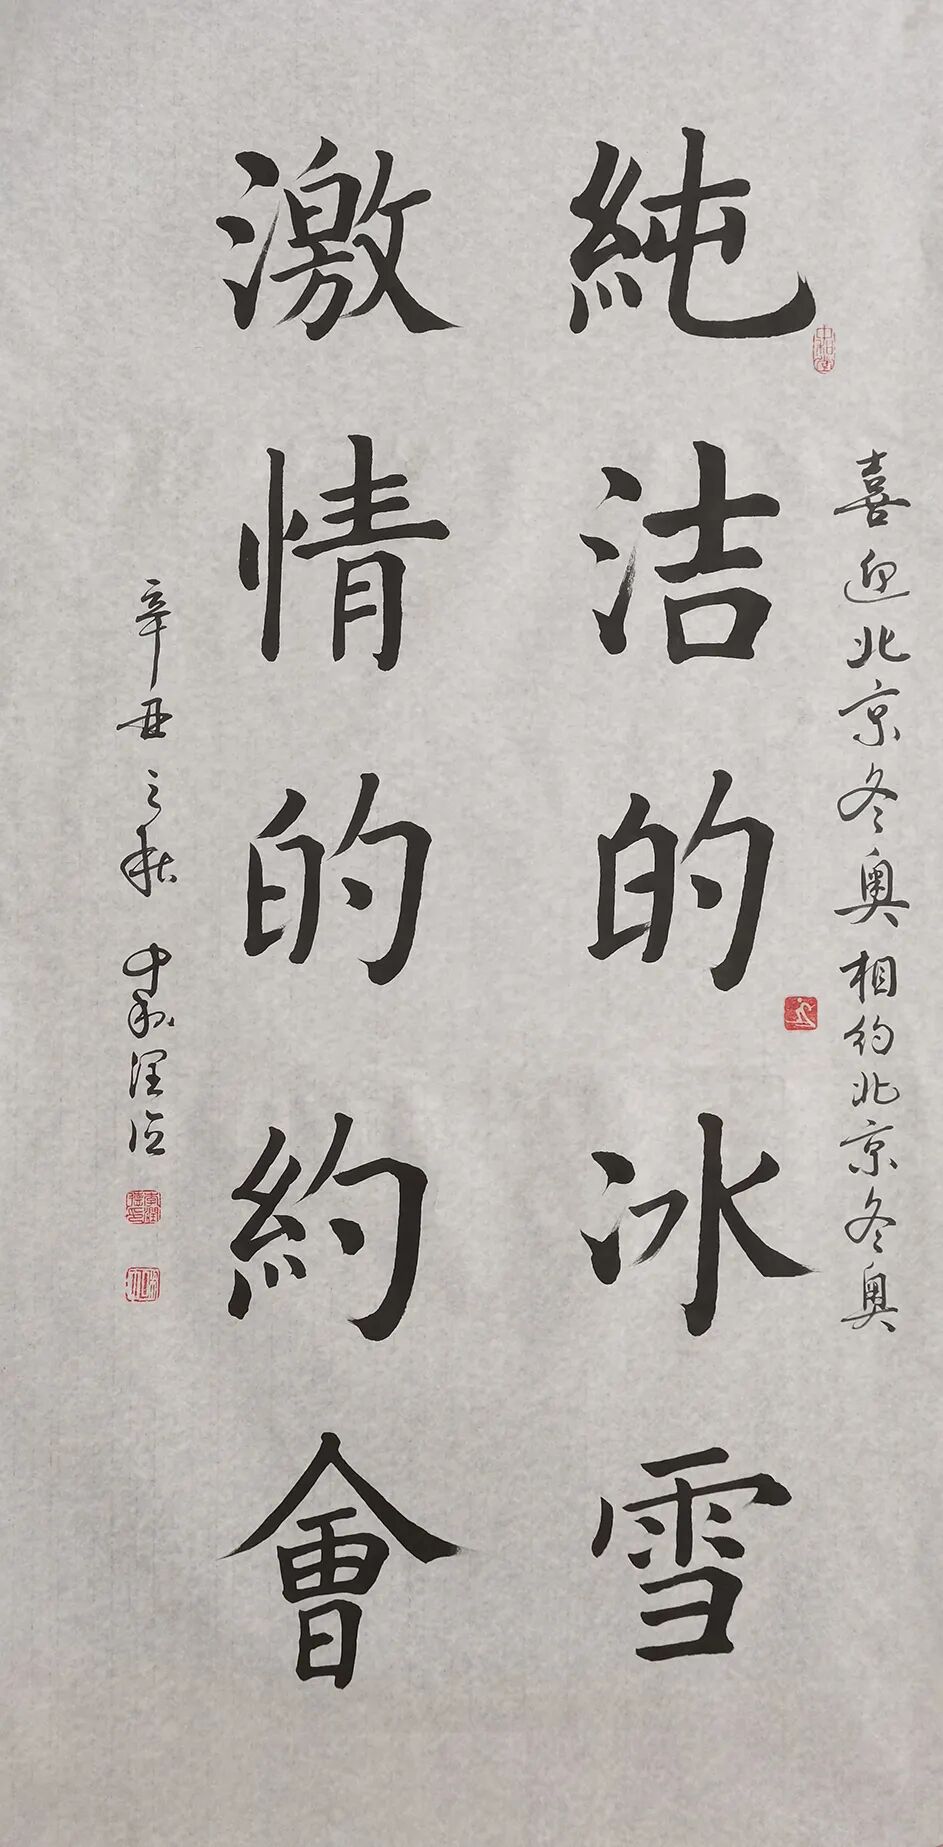 喜迎北京冬奥相约北京冬奥
純洁的冰雪
激情的約會
辛丑之秋